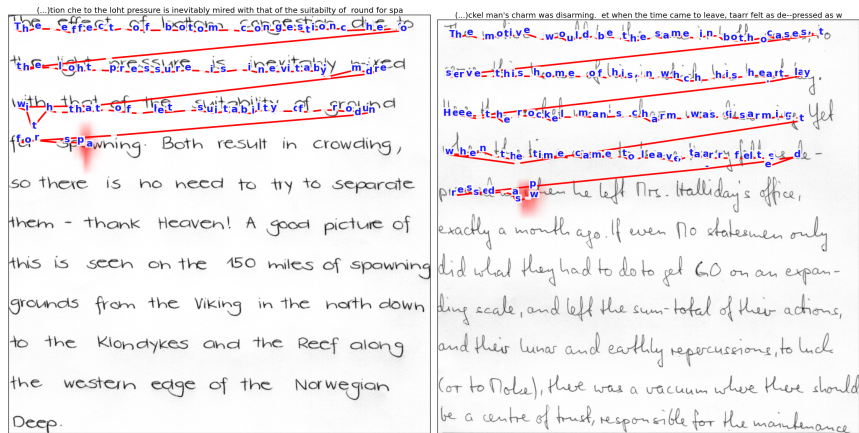 (...)tion che to the loht pressure is inevitably mired with that of the suitabilty of round for spa
The effect of bottom congestion due to
the light pressure is inevitably mired
with that of the suitability of ground
for spawning. Both result in crowding,
so there is no need to try to separate
them - thank Heaven! A good picture of
this is seen on the 150 miles of spawning
grounds from the Viking in the north down
to the Klondykes and the Reef along
the western edge of the Norwegian
Deep.
(...)ckel man's charm was disarming. et when the time came to leave, taarr felt as de--pressed as w
The motive would be the same in both cases, to
serve this home of his, in which his heart lay.
the man's charm was disarming. Yet
when the time came to leave, felt as de-
pressed as when he left Mrs. Halliday's office,
exactly a month ago. If even No statesmen only
did what they had to do to get GO on an expan-
ding scale, and left the sum-total of their actions,
and their lunar and earthly repercussions, to luck
(or to Moke), there was a vacuum where there should
be a centre of trust, responsible for the maintenance